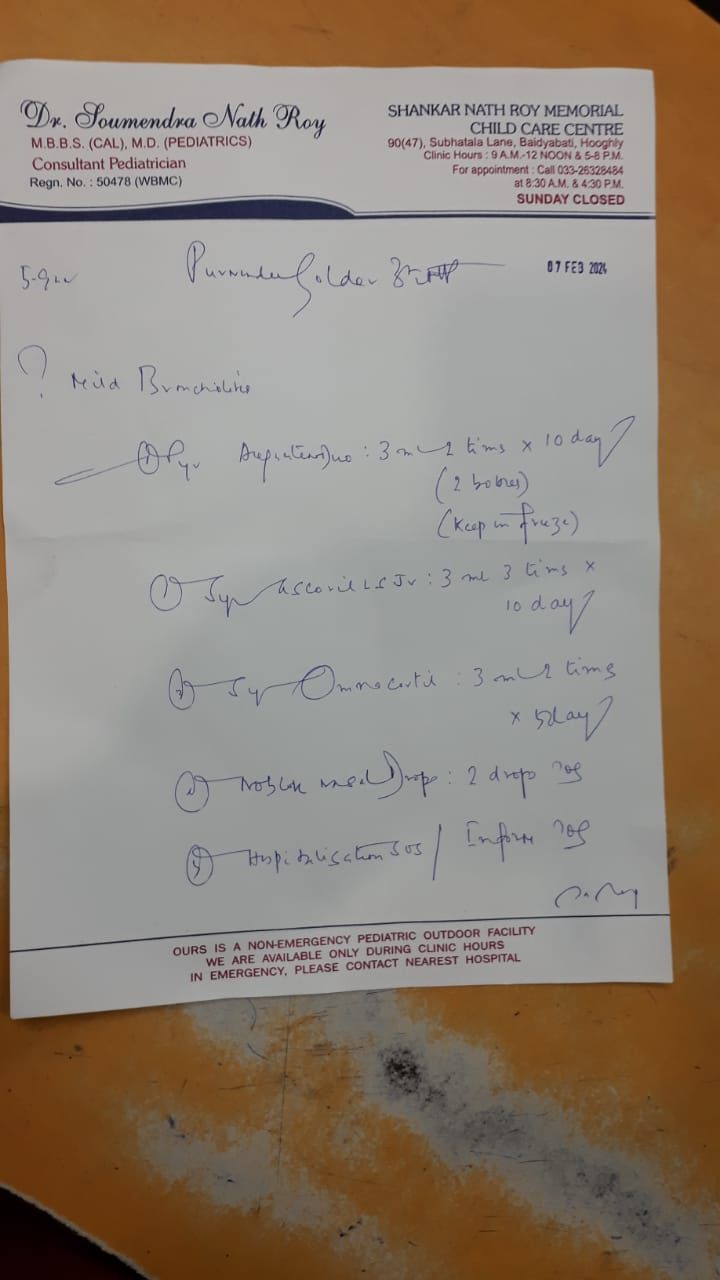 Dr. Soumendra Nath Roy
M.B.B.S. (CAL), M.D. (PEDIATRICS)
Consultant Pediatrician
Regn. No. : 50478 (WBMC)
SHANKAR NATH ROY MEMORIAL
CHILD CARE CENTRE
90(47), Subhatala Lane, Baidyabati, Hooghly
Clinic Hours : 9 A.M.-12 NOON & 5-8 P.M.
For appointment : Call 033-26328484
at 8:30 A.M. & 4:30 P.M.
SUNDAY CLOSED
Golder
07 FEB 2024
? Mild Bronchiolitis
Duo : 3 ml 2 tims x 10 day
(2 botles)
(Keep in freeze)
① Syp Ascoril LS Jr : 3 ml 3 tims x
10 day
Syp Omnacortil : 3 ml 2 tims
x 5 day
Drops : 2 drop
Hospitalisation SOS / Inform
OURS IS A NON-EMERGENCY PEDIATRIC OUTDOOR FACILITY
WE ARE AVAILABLE ONLY DURING CLINIC HOURS
IN EMERGENCY, PLEASE CONTACT NEAREST HOSPITAL